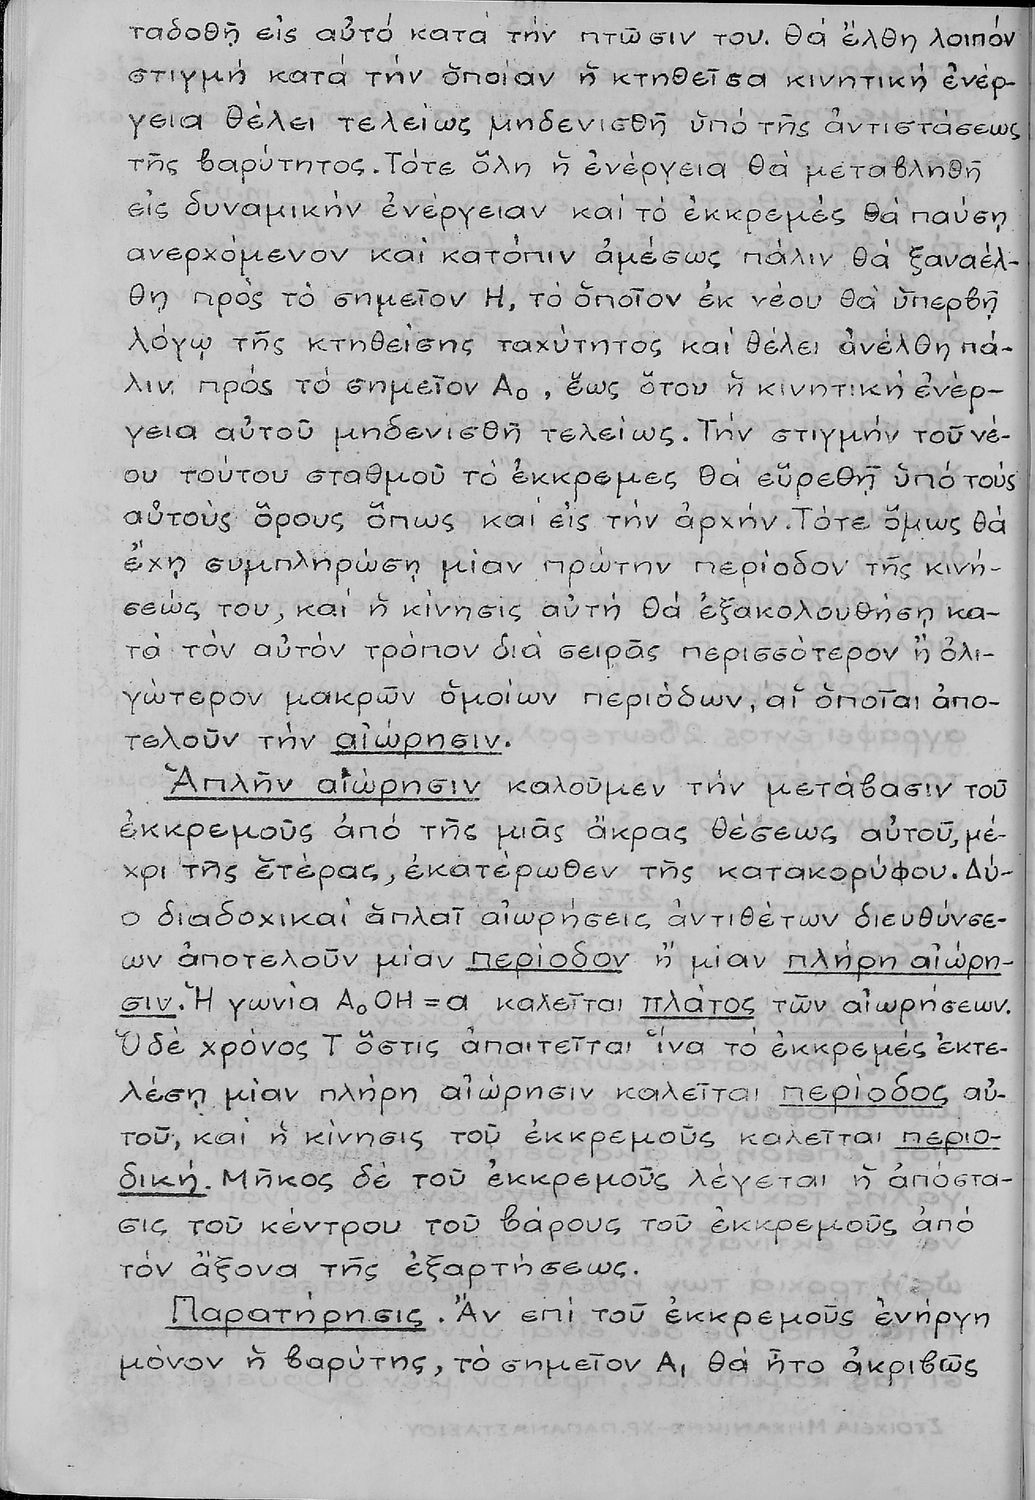 ταδοθῇ εἰς αὐτό κατά τήν πτῶσιν του. Θά ἔλθη λοιπόν
στιγμή κατά τήν ὁποίαν ἡ κτηθεῖσα κινητική ἐνέρ-
γεια θέλει τελείως μηδενισθῆ ὑπό τῆς ἀντιστάσεως
τῆς βαρύτητος. Τότε ὅλη ἡ ἐνέργεια θά μεταβληθῆ
εἰς δυναμικήν ἐνέργειαν καί τό ἐκκρεμές θά παύσῃ
ανερχόμενον καί κατόπιν ἀμέσως πάλιν θά ξαναέλ-
θῃ πρός τό σημεῖον Η, τό ὁποῖον ἐκ νέου θά ὑπερβῇ
λόγῳ τῆς κτηθείσης ταχύτητος καί θέλει ἀνέλθη πά-
λιν πρός τό σημεῖον Α₀, ἕως ὅτου ἡ κινητική ἐνέρ-
γεια αὐτοῦ μηδενισθῆ τελείως. Τήν στιγμήν τοῦ νέ-
ου τούτου σταθμοῦ τό ἐκκρεμες θά εὑρεθῇ ὑπό τούς
αὐτούς ὅρους ὅπως καί εἰς τήν ἀρχήν. Τότε ὅμως θά
ἔχῃ συμπληρώσῃ μίαν πρώτην περίοδον τῆς κινή-
σεώς του, καί ἡ κίνησις αὐτή θά ἐξακολουθήσῃ κα-
τά τόν αὐτόν τρόπον διά σειρᾶς περισσότερον ἤ ὀλι-
γώτερον μακρῶν ὁμοίων περιόδων, αἱ ὁποῖαι ἀπο-
τελοῦν τήν αἰώρησιν.
Ἁπλῆν αἰώρησιν καλοῦμεν τήν μετάβασιν τοῦ
ἐκκρεμοῦς ἀπό τῆς μιᾶς ἄκρας θέσεως αὐτοῦ, μέ-
χρι τῆς ἑτέρας, ἑκατέρωθεν τῆς κατακορύφου. Δύ-
ο διαδοχικαί ἁπλαῖ αἰωρήσεις ἀντιθέτων διευθύνσε-
ων ἀποτελοῦν μίαν περίοδον ἤ μίαν πλήρη αἰώρη-
σιν. Ἡ γωνία Α₀ΟΗ = α καλεῖται πλάτος τῶν αἰωρήσεων.
Ὁ δέ χρόνος Τ ὅστις ἀπαιτεῖται ἵνα τό ἐκκρεμές ἐκτε-
λέσῃ μίαν πλήρη αἰώρησιν καλεῖται περίοδος αὐ-
τοῦ, καί ἡ κίνησις τοῦ ἐκκρεμοῦς καλεῖται περιο-
δική. Μῆκος δέ τοῦ ἐκκρεμοῦς λέγεται ἡ ἀπόστα-
σις τοῦ κέντρου τοῦ βάρους τοῦ ἐκκρεμοῦς ἀπό
τόν ἄξονα τῆς ἐξαρτήσεως.
Παρατήρησις. Ἄν επί τοῦ ἐκκρεμοῦς ἐνήργη
μόνον ἡ βαρύτης, τό σημεῖον Α₁ θά ἦτο ἀκριβῶς